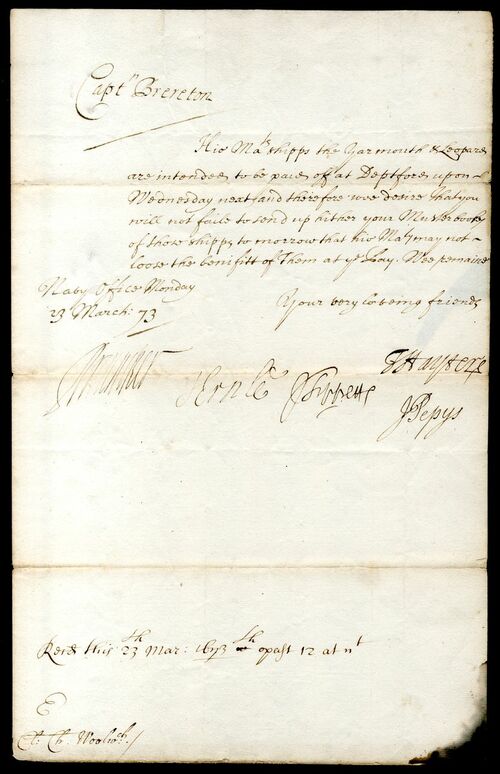 Captn Brereton
His Maty's shipps the Yarmouth & Leopard
are intended to be paid off at Deptford upon
Wednesday next, and therefore wee desire that you
will not faile to send up hither your Muster books
of those shipps to morrow that his Maty may not
loose the benifitt of Them at ye Pay. Wee remaine
Navy Office Monday
23 March: 73
Your very loveing friends
Brouncker
J Ernle JTippetts
THayter
JPepys
Recd this 23th Mar: 1673 past 12 at nt
E
Woolwch